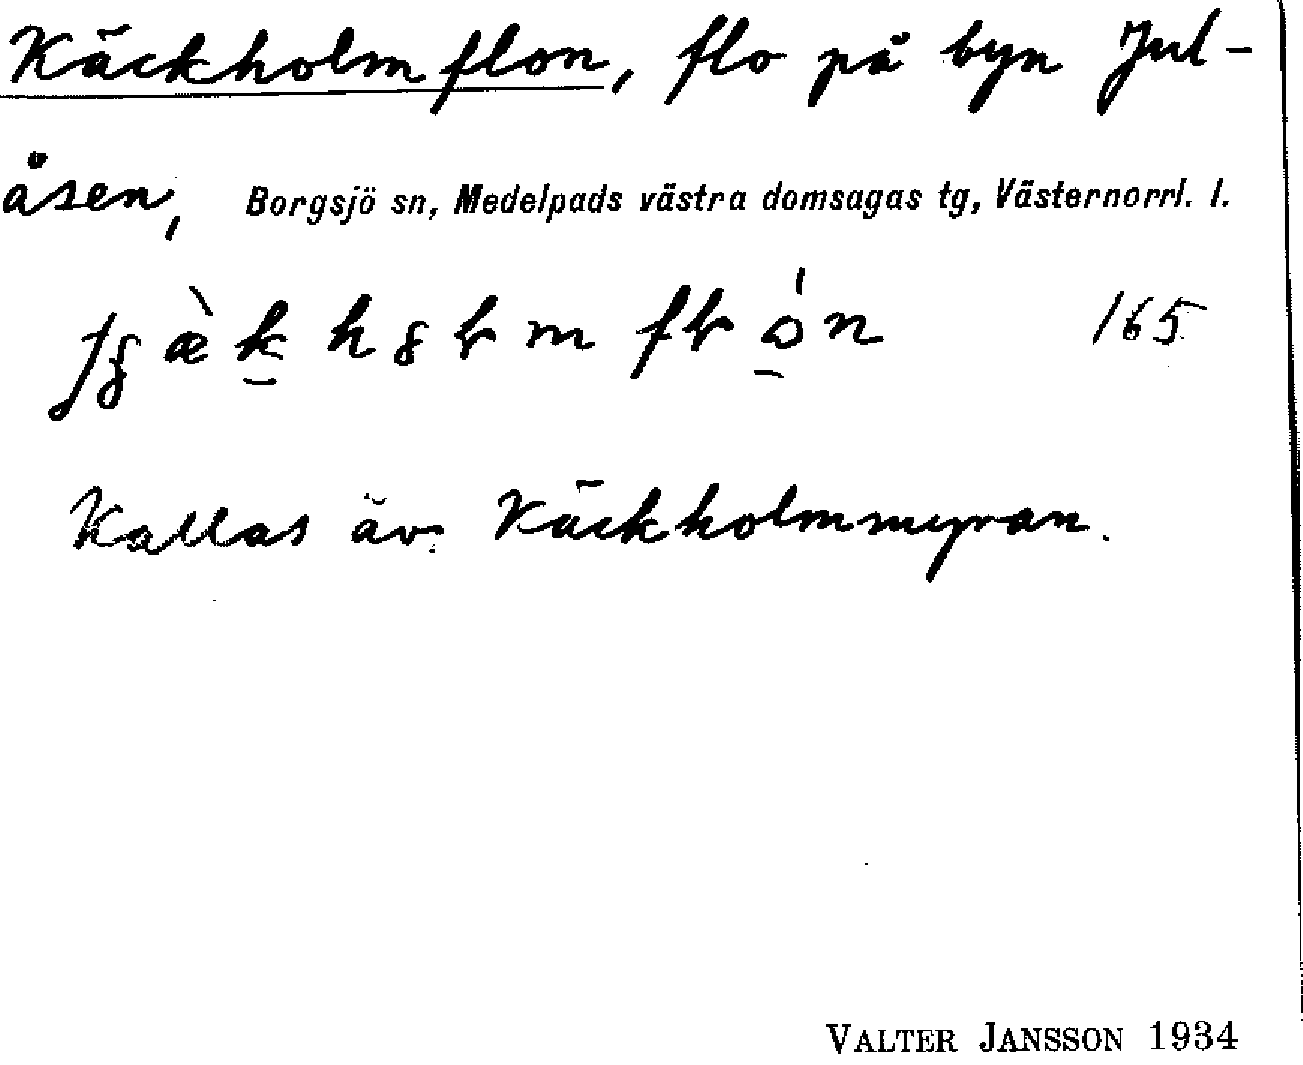 Käckholmflon, flo på byn Jul-
åsen, Borgsjö sn, Medelpads västra domsagas tg, Västernorrl. l.
165
Kallas äv. Käckholmmyran.
VALTER JANSSON 1934